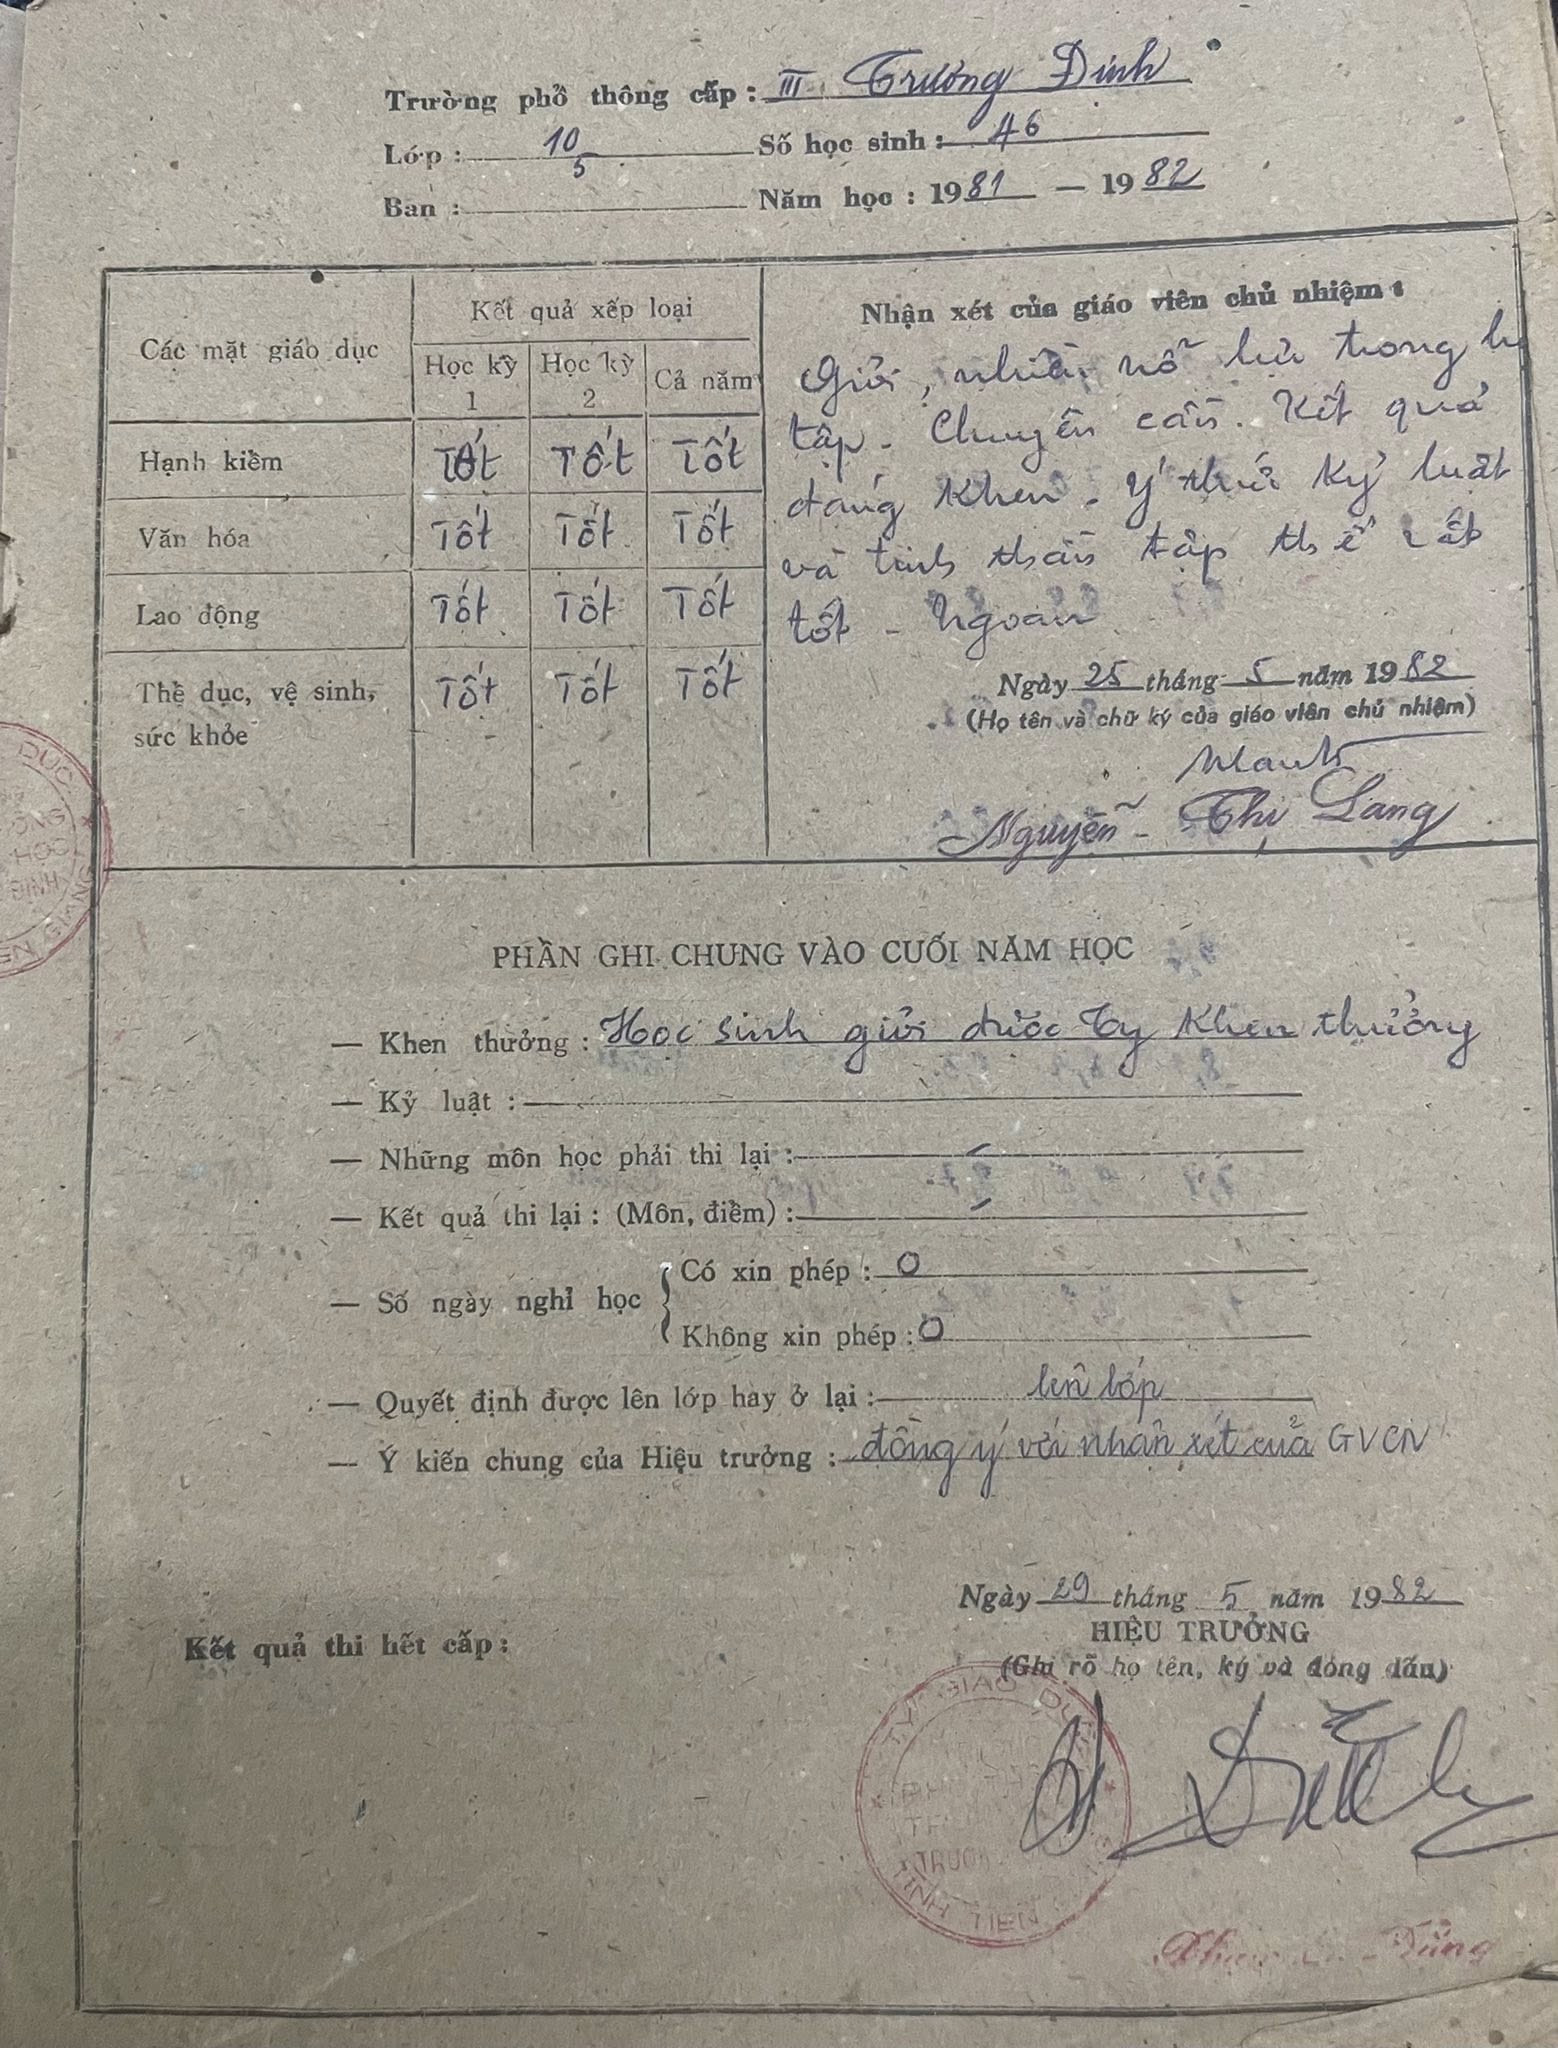 Trường phổ thông cấp : III Trương Định
Lớp : 10/5 Số học sinh : 46
Ban : Năm học : 1981 — 1982
Các mặt giáo dục
Kết quả xếp loại
Học kỳ 1 Học kỳ 2 Cả năm
Hạnh kiểm Tốt Tốt Tốt
Văn hóa Tốt Tốt Tốt
Lao động Tốt Tốt Tốt
Thể dục, vệ sinh, Tốt Tốt Tốt
sức khỏe
Nhận xét của giáo viên chủ nhiệm :
Giỏi, nhiều nỗ lực trong
tập - Chuyên cần. Kết quả
đáng khen - Ý thức kỷ luật
và tinh thần tập thể rất
tốt - Ngoan
Ngày 25 tháng 5 năm 1982
(Họ tên và chữ ký của giáo viên chủ nhiệm)
Nguyễn - Thị Lang
PHẦN GHI CHUNG VÀO CUỐI NĂM HỌC
— Khen thưởng : Học sinh giỏi được Ty khen thưởng
— Kỷ luật :
— Những môn học phải thi lại : -
— Kết quả thi lại : (Môn, điểm) : -
— Số ngày nghỉ học { Có xin phép : 0
Không xin phép : 0
— Quyết định được lên lớp hay ở lại : lên lớp
— Ý kiến chung của Hiệu trưởng : đồng ý với nhận xét của GVCN
Ngày 29 tháng 5 năm 1982
HIỆU TRƯỞNG
(Ghi rõ họ tên, ký và đóng dấu)
Kết quả thi hết cấp :
TY GIÁO DỤC
TỈNH TIỀN
Dũng